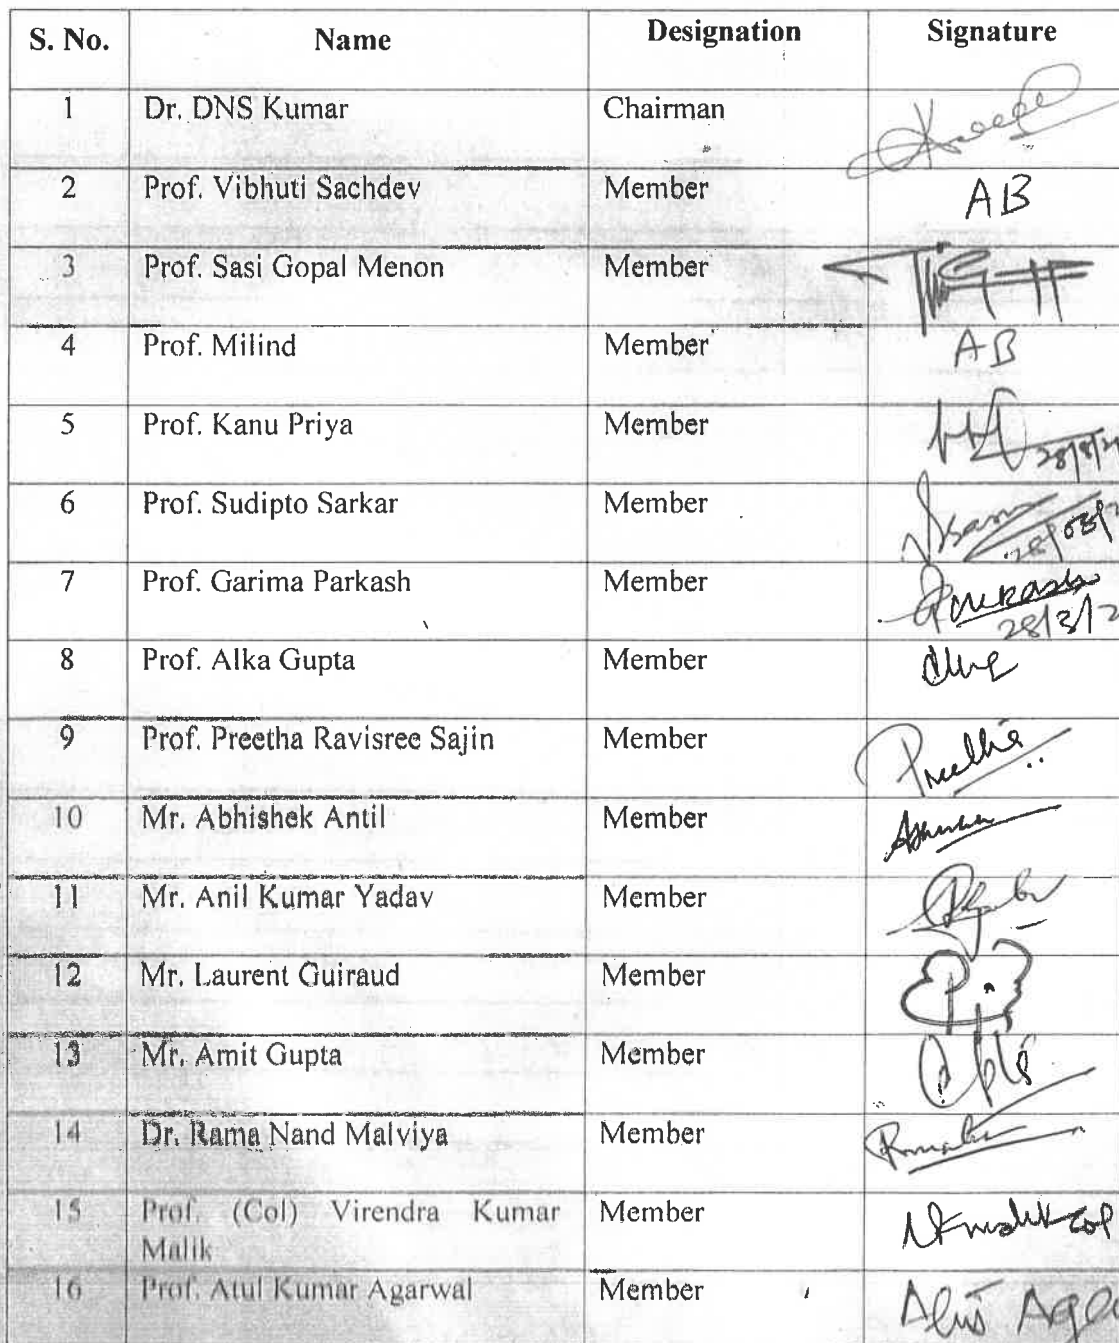 S. No. Name Designation Signature
1 Dr. DNS Kumar Chairman
2 Prof. Vibhuti Sachdev Member AB
3 Prof. Sasi Gopal Menon Member
4 Prof. Milind Member AB
5 Prof. Kanu Priya Member
6 Prof. Sudipto Sarkar Member
7 Prof. Garima Parkash Member
8 Prof. Alka Gupta Member
9 Prof. Preetha Ravisree Sajin Member
10 Mr. Abhishek Antil Member
11 Mr. Anil Kumar Yadav Member
12 Mr. Laurent Guiraud Member
13 Mr. Amit Gupta Member
14 Dr. Rama Nand Malviya Member
15 Prof. (Col) Virendra Kumar Member
Malik
16 Prof. Atul Kumar Agarwal Member